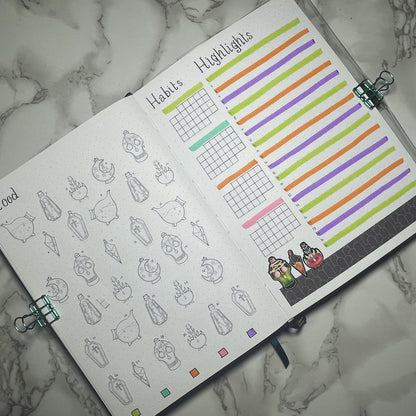 ood
Habits
Highlights